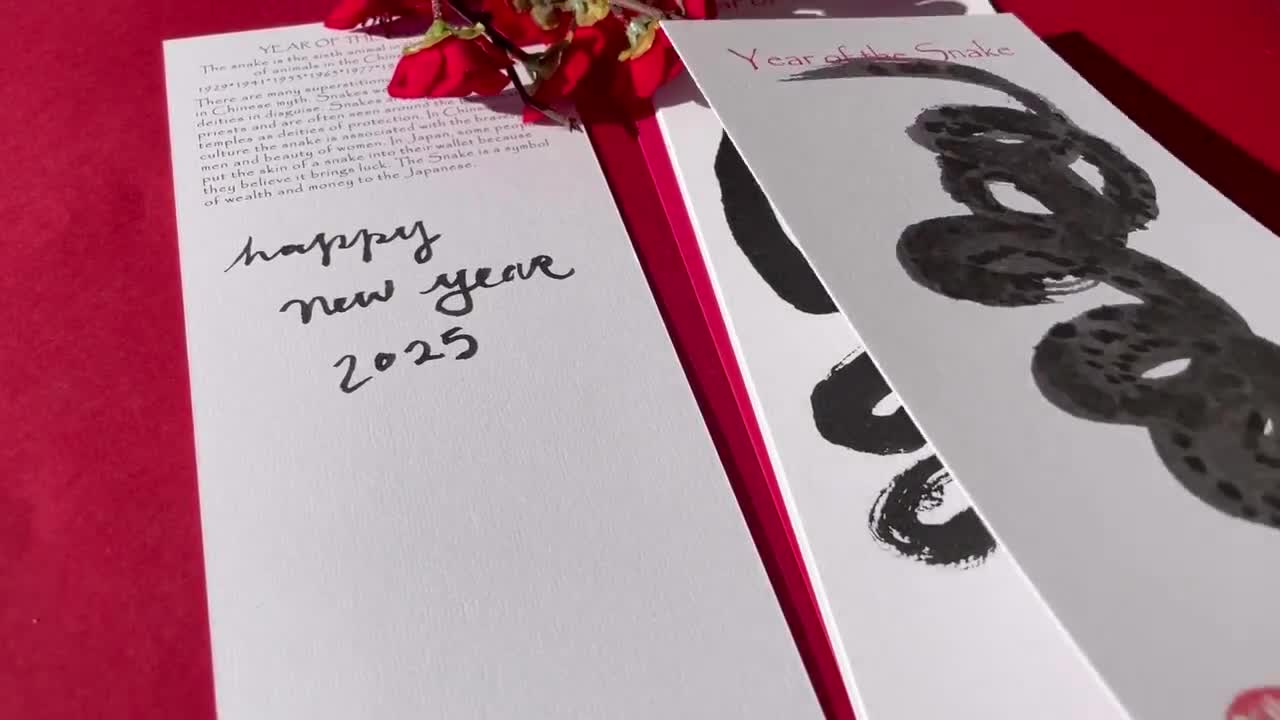 YEAR OF THE
The snake is the sixth animal
of animals in the Chin
1929*1941*1953*1965*1977*1
There are many superstitions
in Chinese myth. Snakes
deities in disguise. Snakes
priests and are often seen around the
temples as deities of protection. In Chinese
culture the snake is associated with the brave
men and beauty of women. In Japan, some people
put the skin of a snake into their wallet because
they believe it brings luck. The Snake is a symbol
of wealth and money to the Japanese.
happy
new year
2025
Year of the Snake